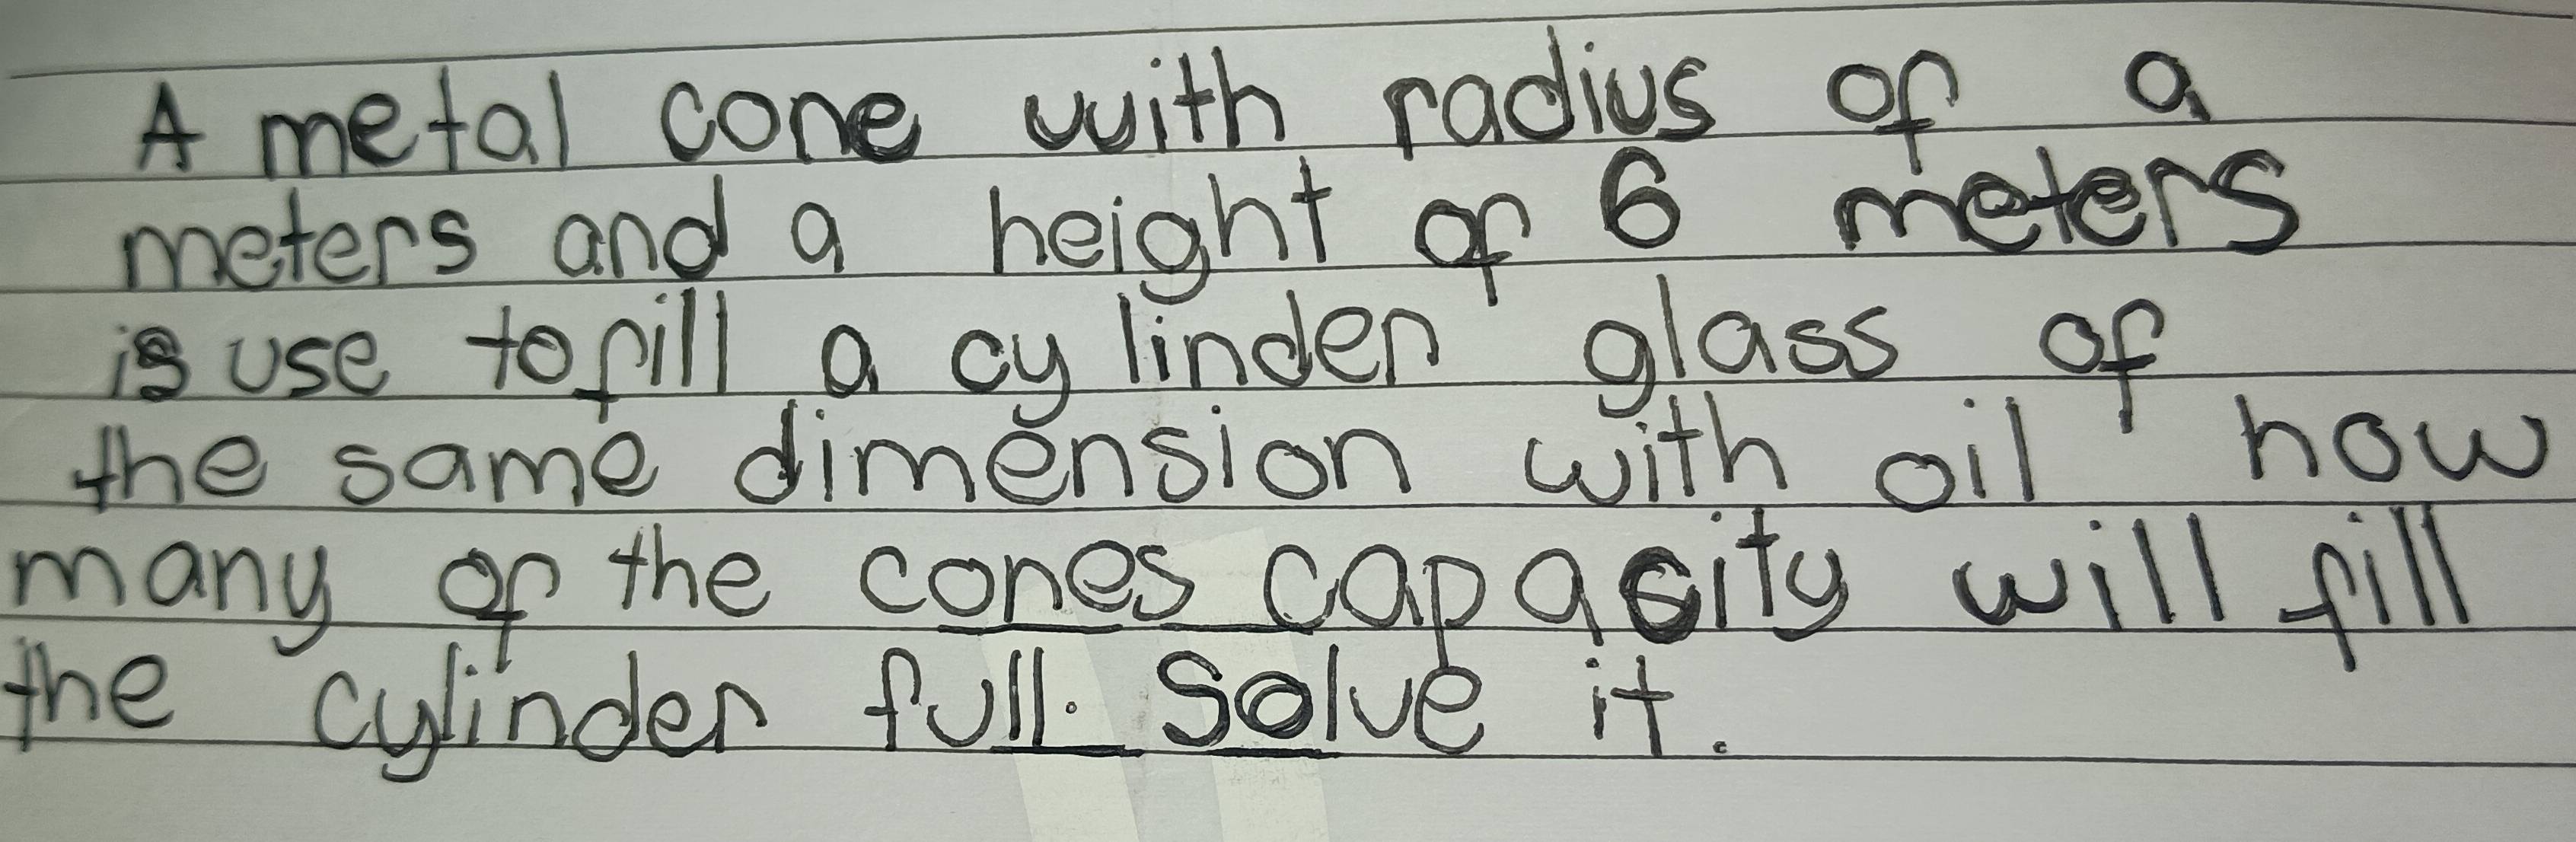 A metal cone with radius of a
meters and a height of 6 meters
is use to fill a cylinder glass of
the same dimension with oil how
many of the cones capacity will fill
the cylinder full. Solve it.